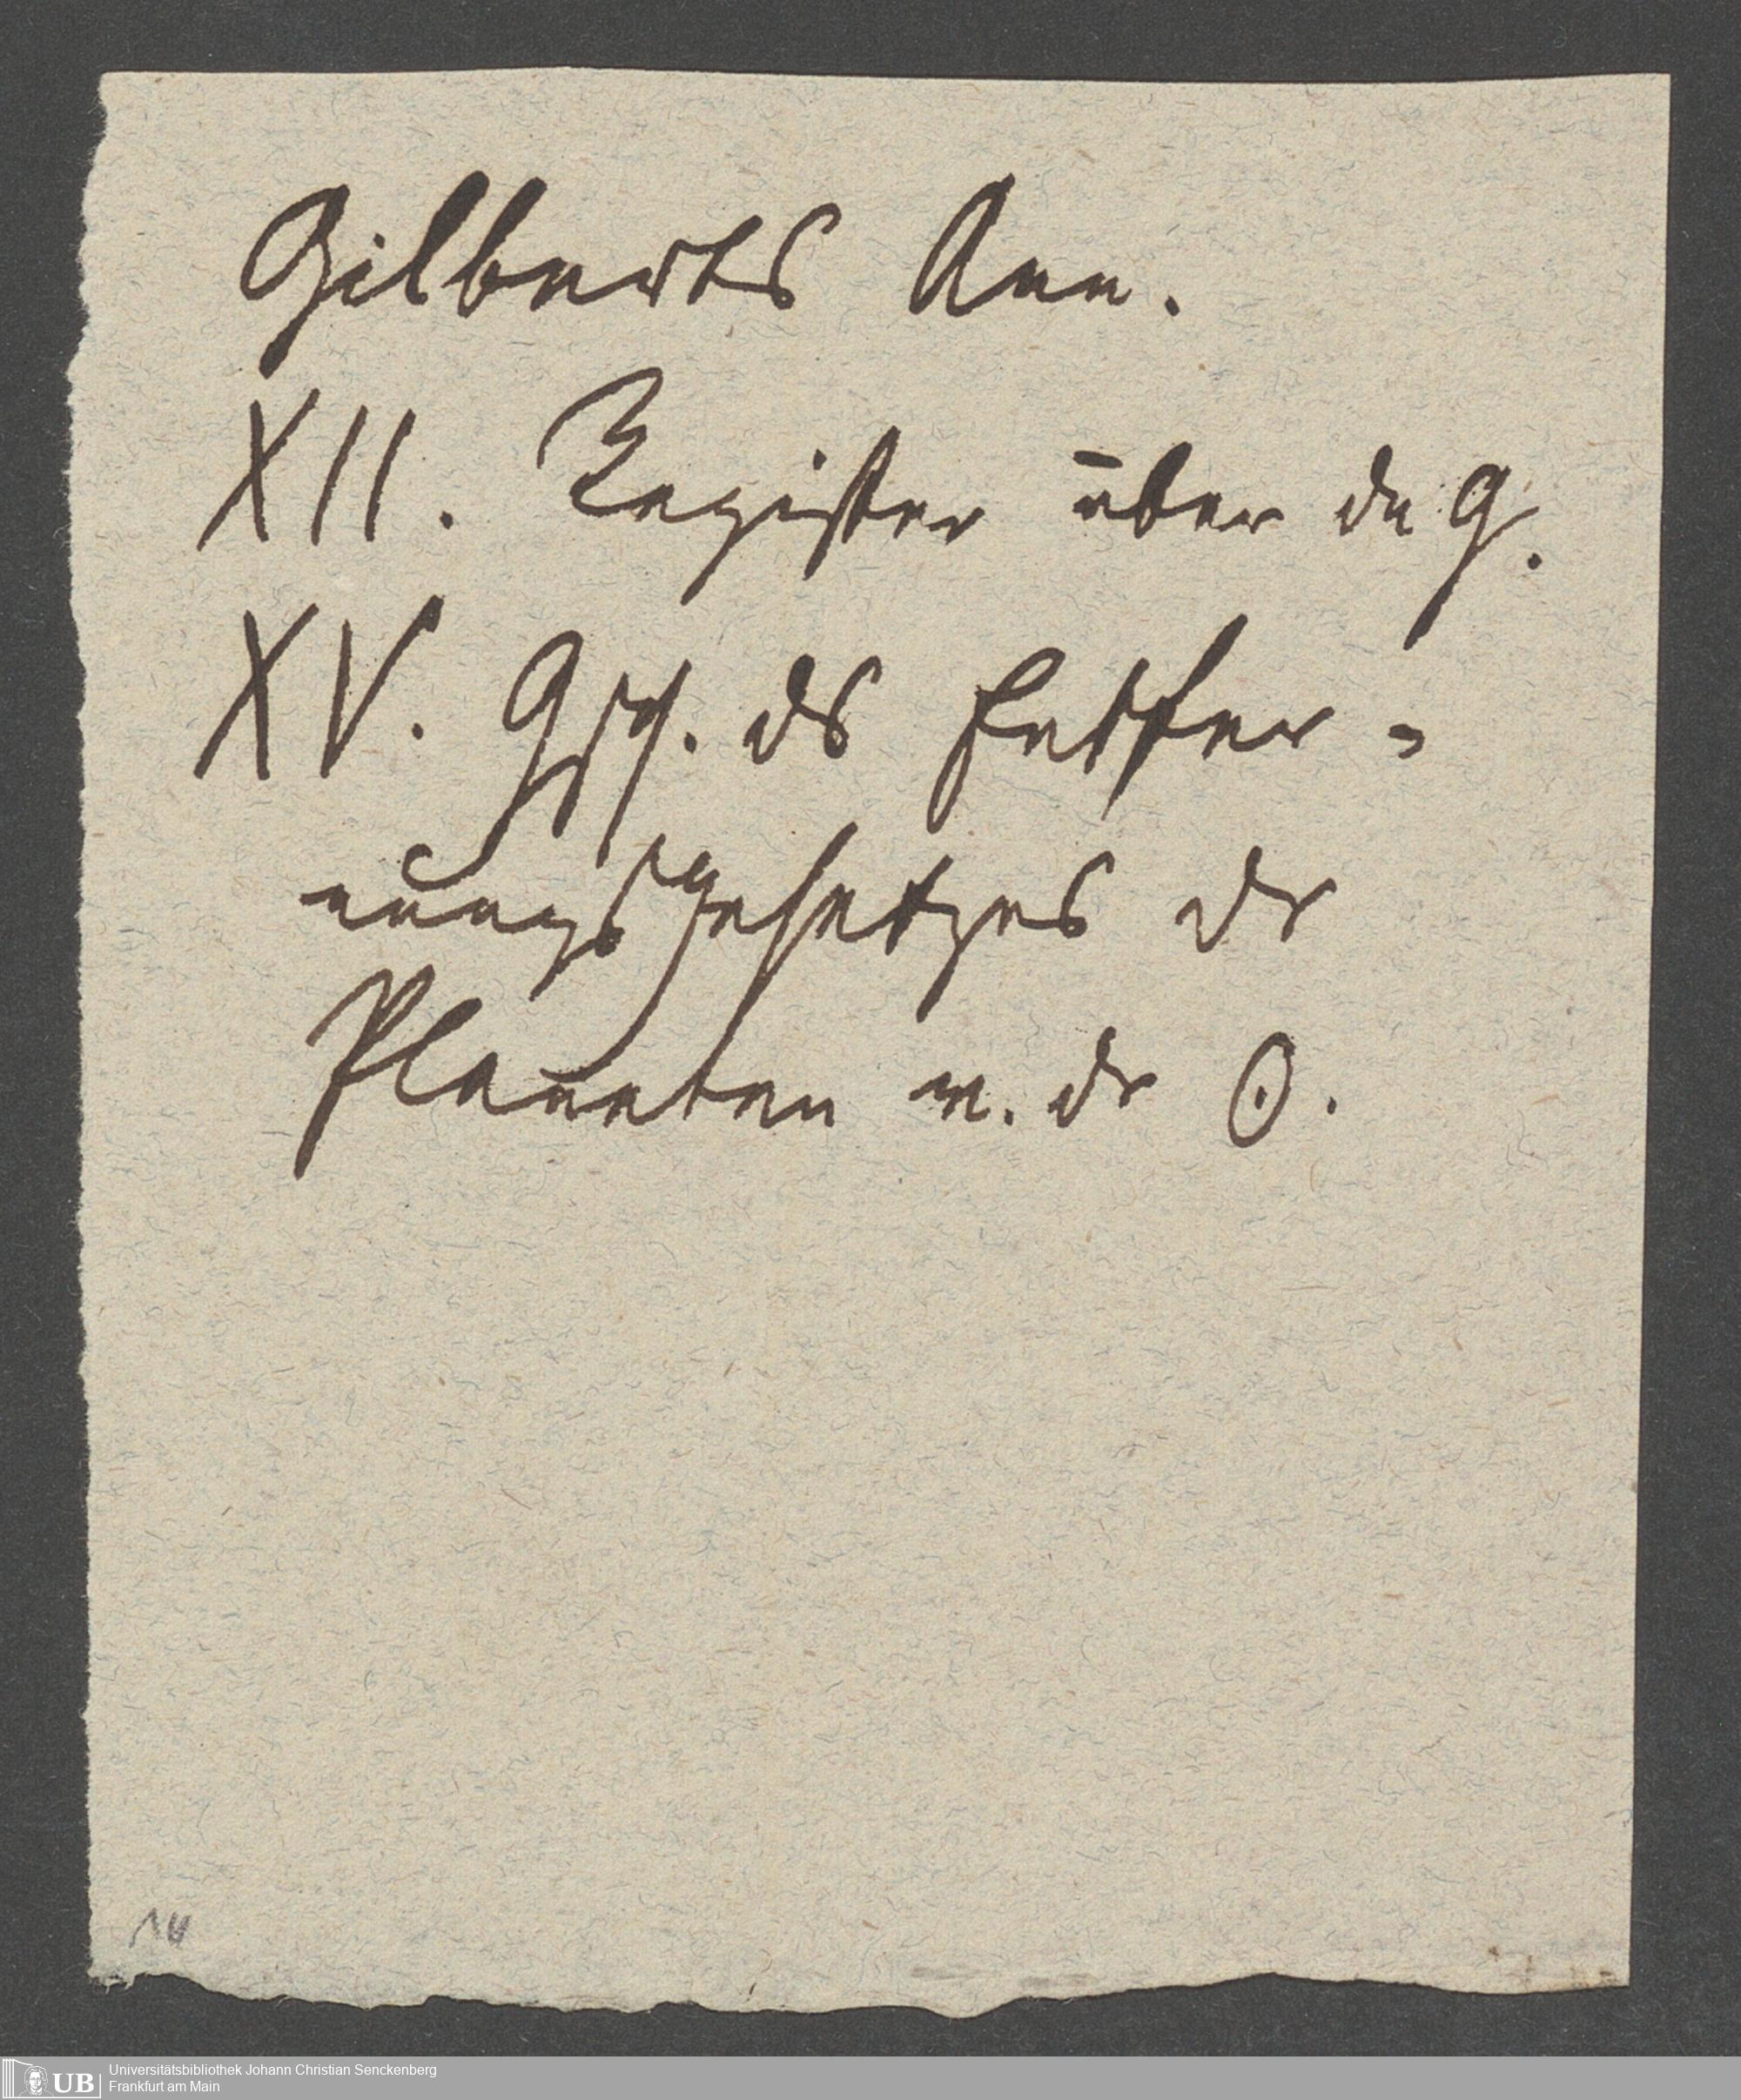 Gilberts Ann.
XII. Register über de G.
XV. Gsch. ds Entfer-
nungsgesetzes dr
Planeten v. dr ☉.
14
UB Universitätsbibliothek Johann Christian Senckenberg
Frankfurt am Main